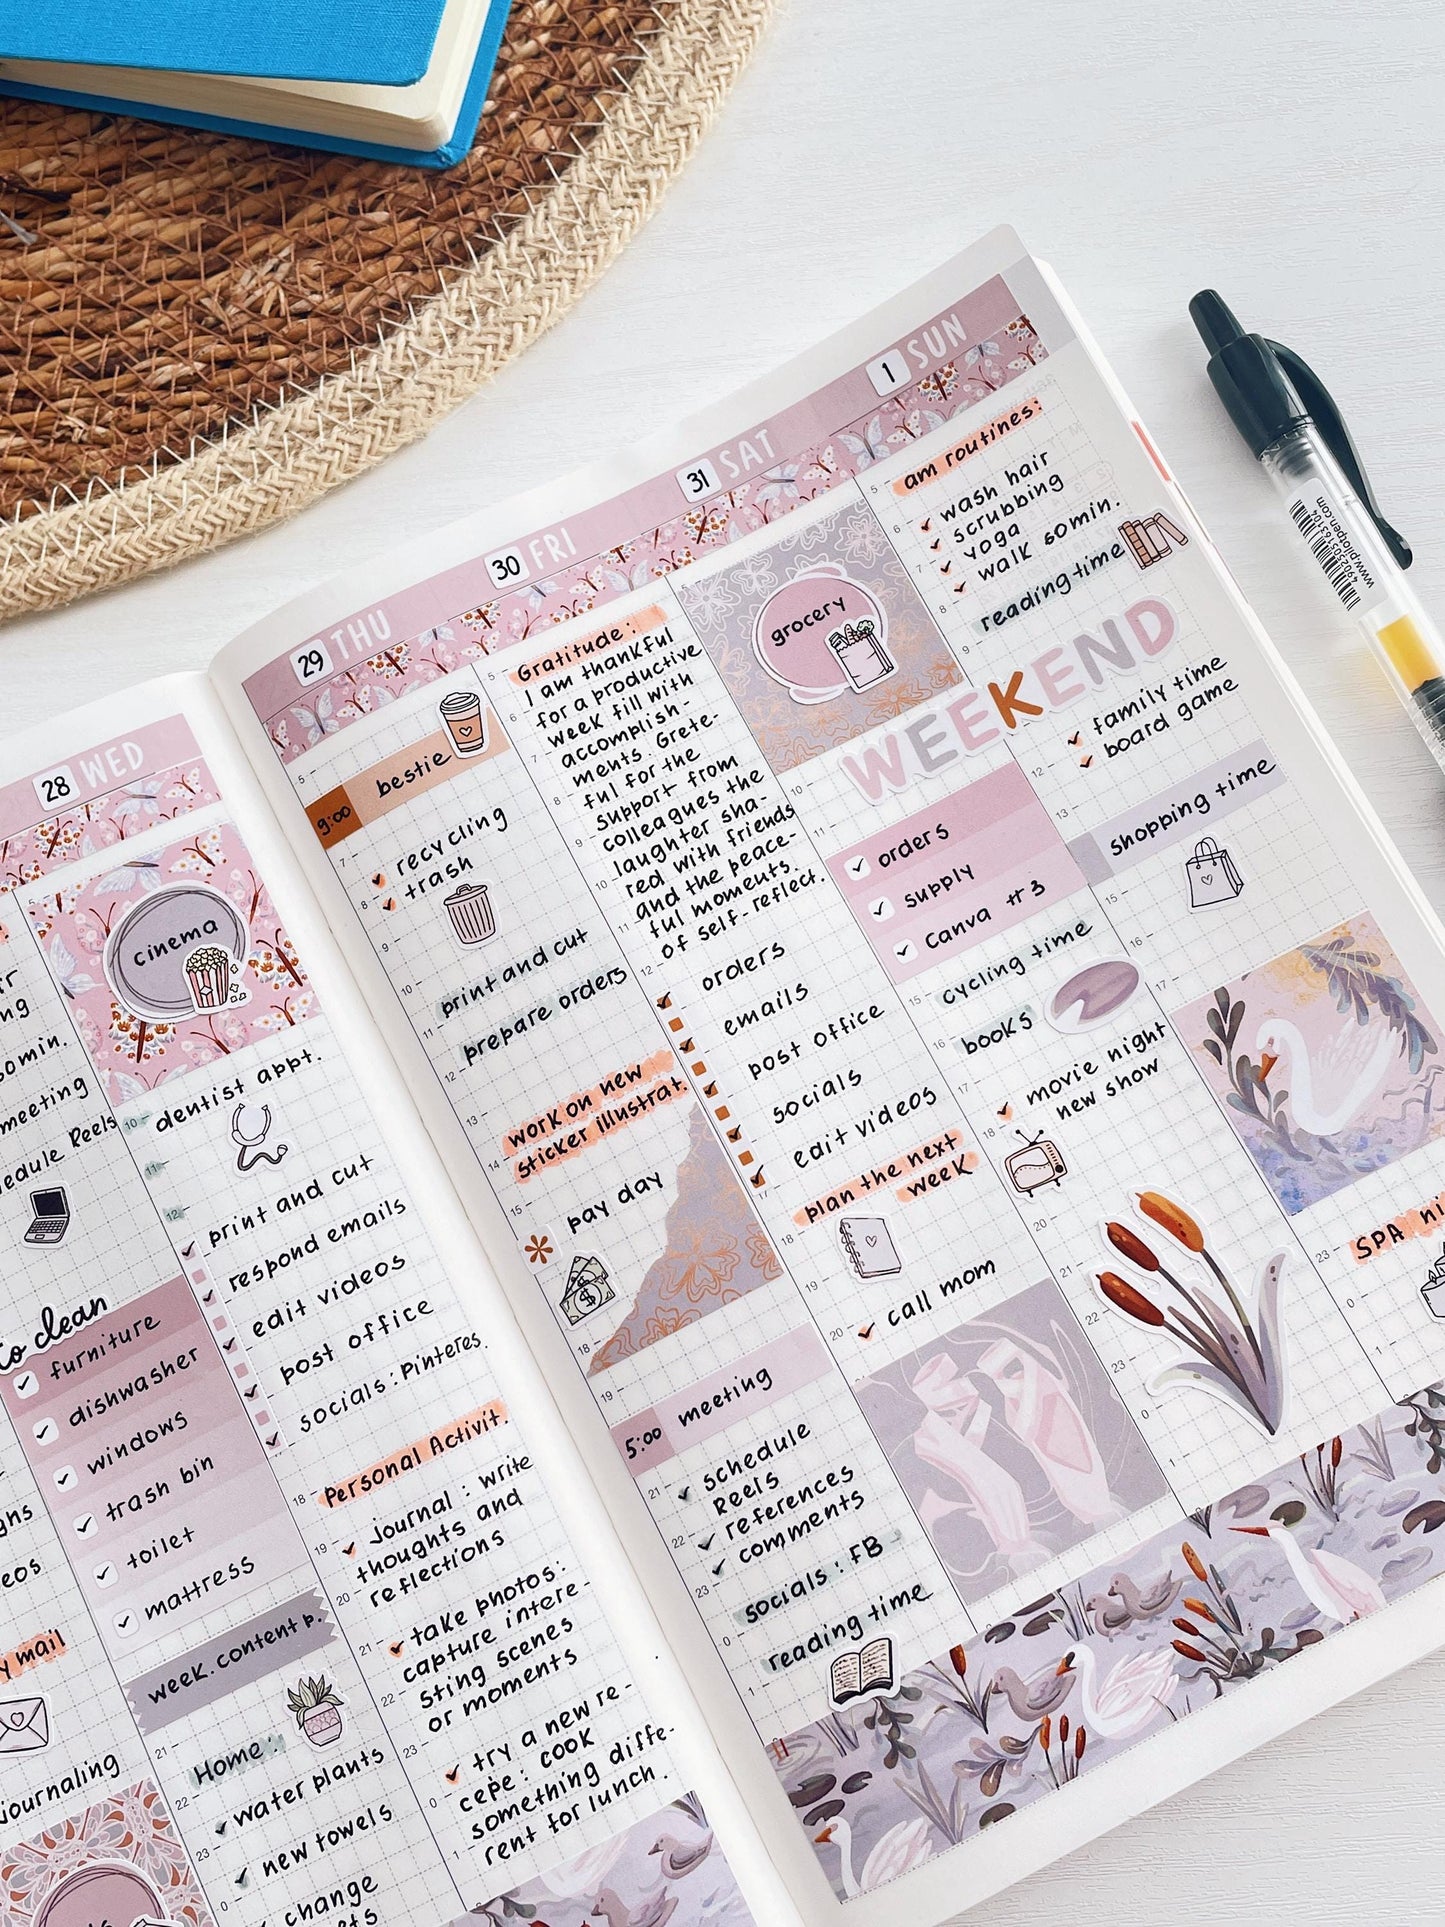 28 WED
60min.
meeting
edule Reels
to clean
furniture
dishwasher
windows
trash bin
toilet
mattress
week. content p.
Home:
water plants
new towels
change
y mail
journaling
cinema
10
dentist appt.
11
12
print and cut
respond emails
edit videos
post office
socials: Pinteres.
Personal Activit.
journal: write
thoughts and
reflections
take photos:
capture intere-
sting scenes
or moments
try a new re-
cepe: cook
something diffe-
rent for lunch.
29 THU
9:00 bestie
recycling
trash
print and cut
prepare orders
work on new
sticker illustrat.
pay day
5:00 meeting
schedule
Reels
references
comments
socials: FB
reading time
30 FRI
Gratitude:
I am thankful
for a productive
week fill with
accomplish-
ments. Grete-
ful for the
support from
colleagues the
laughter sha-
red with friends
and the peace-
ful moments
of self-reflect.
orders
emails
post office
socials
edit videos
plan the next
week
call mom
31 SAT
grocery
WEEKEND
orders
supply
canva #3
cycling time
books
movie night
new show
1 SUN
am routines:
wash hair
scrubbing
yoga
walk 60min.
reading time
family time
board game
shopping time
SPA ni
www.pilotpen.com
4902505163104